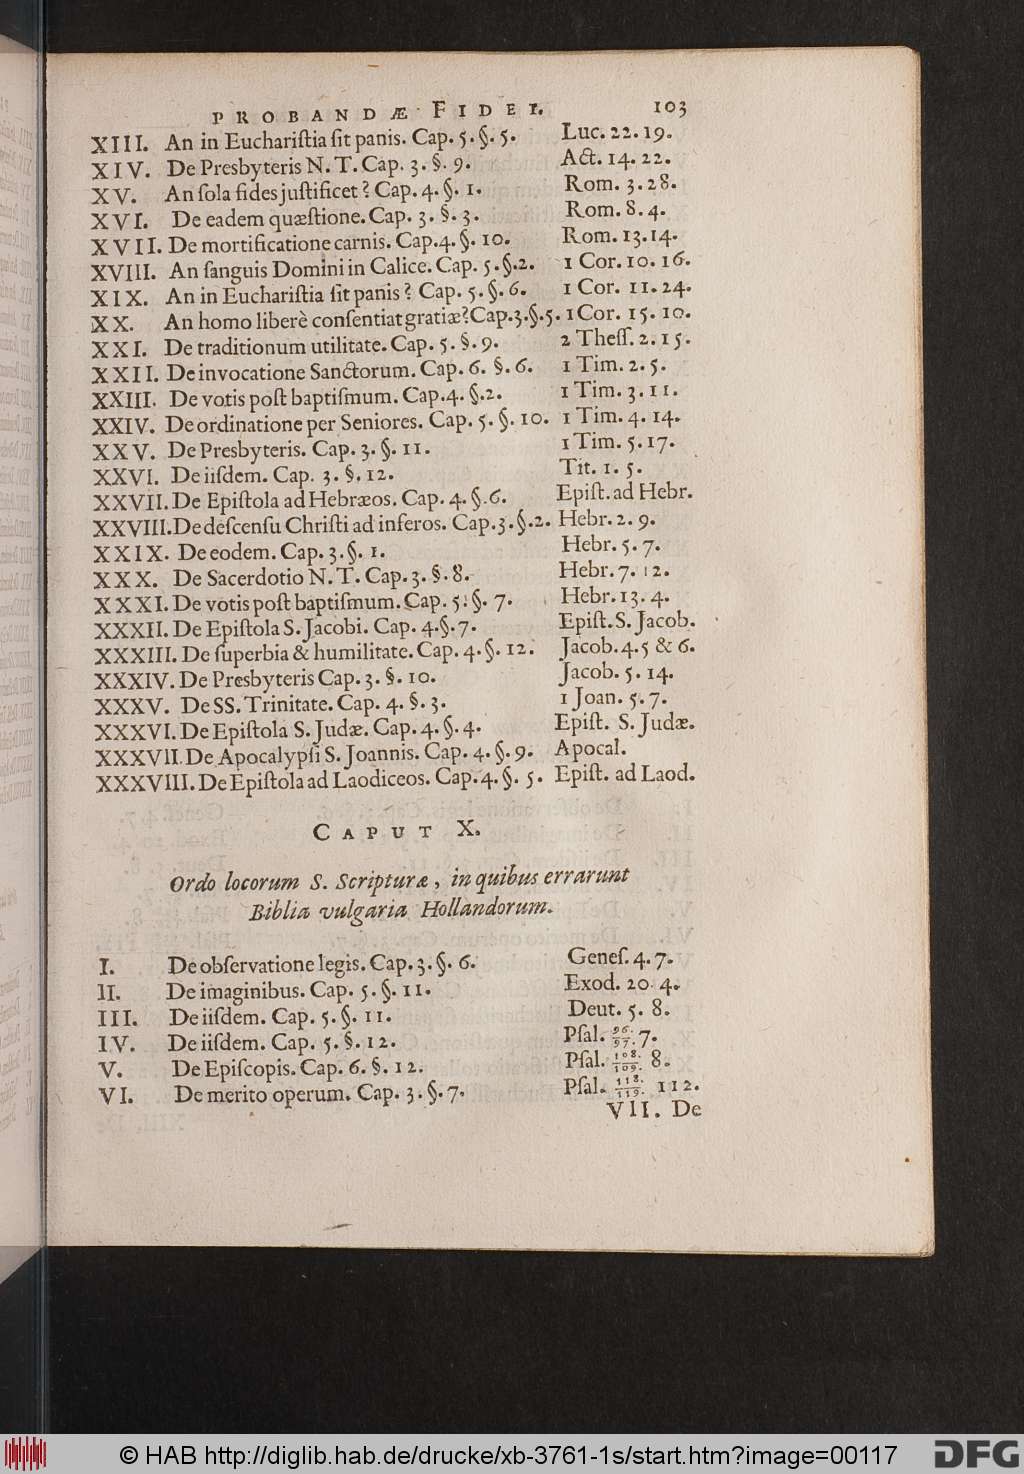 PROBANDÆ FIDEI. 103
XIII. An in Euchariſtia ſit panis. Cap. 5. §. 5. Luc. 22. 19.
XIV. De Presbyteris N. T. Cap. 3. §. 9. Act. 14. 22.
XV. An ſola fides juſtificet? Cap. 4. §. 1. Rom. 3. 28.
XVI. De eadem quæſtione. Cap. 3. §. 3. Rom. 8. 4.
XVII. De mortificatione carnis. Cap. 4. §. 10. Rom. 13. 14.
XVIII. An ſanguis Domini in Calice. Cap. 5. §. 2. 1 Cor. 10. 16.
XIX. An in Euchariſtia ſit panis? Cap. 5. §. 6. 1 Cor. 11. 24.
XX. An homo liberè conſentiat gratiæ? Cap. 3. §. 5. 1 Cor. 15. 10.
XXI. De traditionum utilitate. Cap. 5. §. 9. 2 Theſſ. 2. 15.
XXII. De invocatione Sanctorum. Cap. 6. §. 6. 1 Tim. 2. 5.
XXIII. De votis poſt baptiſmum. Cap. 4. §. 2. 1 Tim. 3. 11.
XXIV. De ordinatione per Seniores. Cap. 5. §. 10. 1 Tim. 4. 14.
XXV. De Presbyteris. Cap. 3. §. 11. 1 Tim. 5. 17.
XXVI. De iiſdem. Cap. 3. §. 12. Tit. 1. 5.
XXVII. De Epiſtola ad Hebræos. Cap. 4. §. 6. Epiſt. ad Hebr.
XXVIII. De deſcenſu Chriſti ad inferos. Cap. 3. §. 2. Hebr. 2. 9.
XXIX. De eodem. Cap. 3. §. 1. Hebr. 5. 7.
XXX. De Sacerdotio N. T. Cap. 3. §. 8. Hebr. 7. 12.
XXXI. De votis poſt baptiſmum. Cap. 5. §. 7. Hebr. 13. 4.
XXXII. De Epiſtola S. Jacobi. Cap. 4. §. 7. Epiſt. S. Jacob.
XXXIII. De ſuperbia & humilitate. Cap. 4. §. 12. Jacob. 4. 5 & 6.
XXXIV. De Presbyteris Cap. 3. §. 10. Jacob. 5. 14.
XXXV. De SS. Trinitate. Cap. 4. §. 3. 1 Joan. 5. 7.
XXXVI. De Epiſtola S. Judæ. Cap. 4. §. 4. Epiſt. S. Judæ.
XXXVII. De Apocalypſi S. Joannis. Cap. 4. §. 9. Apocal.
XXXVIII. De Epiſtola ad Laodiceos. Cap. 4. §. 5. Epiſt. ad Laod.
CAPUT X.
Ordo locorum S. Scripturæ, in quibus errarunt
Biblia vulgaria Hollandorum.
I. De obſervatione legis. Cap. 3. §. 6. Geneſ. 4. 7.
II. De imaginibus. Cap. 5. §. 11. Exod. 20. 4.
III. De iiſdem. Cap. 5. §. 11. Deut. 5. 8.
IV. De iiſdem. Cap. 5. §. 12. Pſal. 96/97. 7.
V. De Epiſcopis. Cap. 6. §. 12. Pſal. 108/109. 8.
VI. De merito operum. Cap. 3. §. 7. Pſal. 118/119. 112.
VII. De
© HAB http://diglib.hab.de/drucke/xb-3761-1s/start.htm?image=00117
DFG